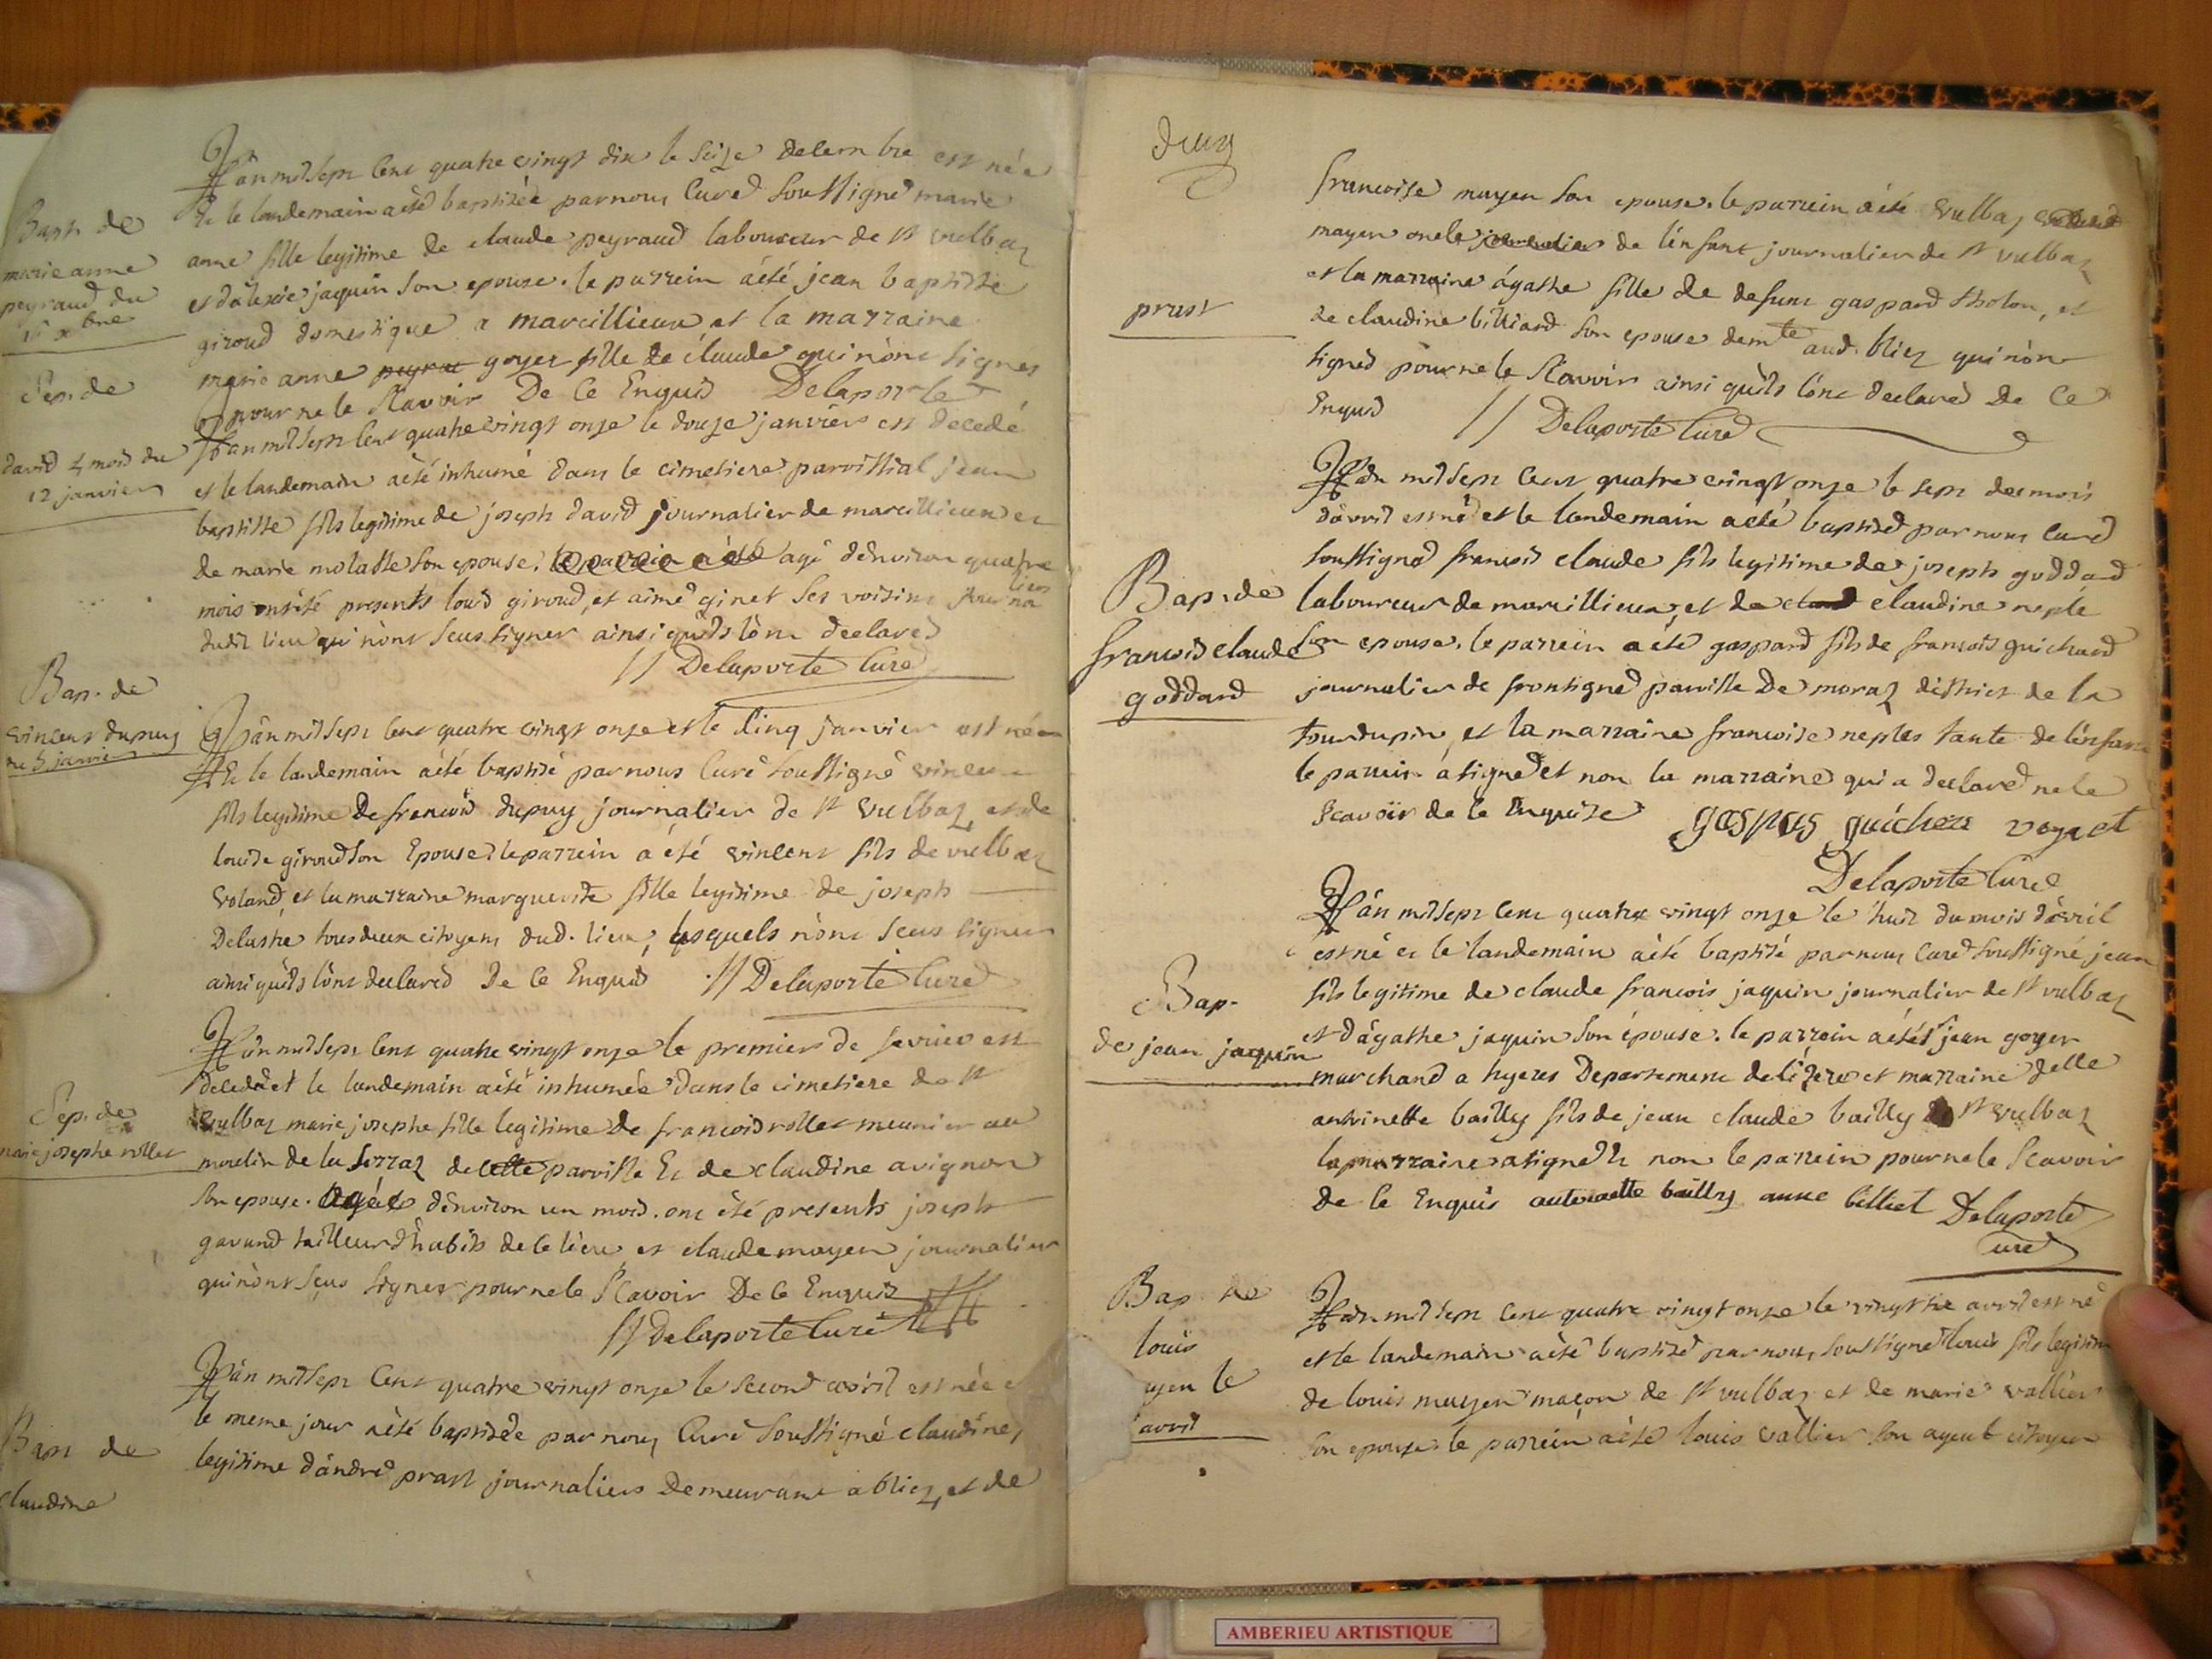 Bapt. de
marie anne
peyraud du
16 xbre
L'an mil sept cent quatre vingt dix le seize decembre est née
et le landemain a été baptisée par nous Curé soussigné marie
anne fille legitime de claude peyraud laboureur de st vulbaz
et d'alexie jaquin son epouse. le parrein a été jean baptiste
giroud domestique a marcillieux et la marraine
marie anne goyer fille de claude qui n'ont signer
pour ne le sçavoir De ce Enquis Delaporte
Sep. de
david 4 mois du
12 janvier
L'an mil sept cent quatre vingt onze le douze janvier est decedé
et le landemain a été inhumé dans le cimetiere parroissial jean
baptiste fils legitime de joseph david journalier de marcillieux et
de marie molasse son epouse. agé d'environ quatre
mois ont été presents louis giroud, et aimé ginet ses voisins journaliers
dudit lieu qui n'ont sceus signer ainsi qu'ils l'ont declaré
// Delaporte Curé
Bap. de
vincent dupuy
du 5 janvier
L'an mil sept cent quatre vingt onze et le cinq janvier est né
Et le landemain a été baptisé par nous Curé soussigné vincent
fils legitime de francois dupuy journalier de st vulbaz, et de
louise giroud son Epouse. le parrein a été vincent fils de vulbaz
voland, et la marraine marguerite fille legitime de joseph
Delastre tous deux citoyens dud. lieu, lesquels n'ont sceus signer
ainsi qu'ils l'ont declaré De ce Enquis // Delaporte Curé
Sep. de
marie josephe rollet
L'an mil sept cent quatre vingt onze le premier de fevrier est
decedée et le landemain a été inhumée dans le cimetiere de st
vulbaz marie josephe fille legitime de francois rollet meunier au
moulin de la serraz de cette parroisse Et de claudine avignon
son epouse. agée d'environ un mois. ont été presents joseph
gavand tailleur d'habits de ce lieu et claude moyen journalier
qui n'ont sçus signer pour ne le sçavoir De ce Enquis
// Delaporte Curé
Bapt de
claudine
L'an mil sept cent quatre vingt onze le second avril est née et
le meme jour a été baptisée par nous Curé soussigné claudine,
legitime d'andré prast journalier demeurant a bliez, et de
deux
prast
francoise moyen son epouse. le parrein a été vulbaz
moyen oncle de l'enfant journalier de st vulbaz
et la marraine agathe fille de defunt gaspard tholon, et
de claudine billiard son epouse demte aud. bliez qui n'ont
signé pour ne le sçavoir ainsi qu'ils l'ont declaré De ce
Enquis // Delaporte Curé
Bap. de
francois claude
goddard
L'an mil sept cent quatre vingt onze le sept du mois
d'avril est né et le landemain a été baptisé par nous Curé
soussigné francois claude fils legitime de joseph goddard
laboureur de marcillieux, et de claudine neple
son epouse. le parrein a été gaspard fils de francois guichard
journalier de frontigné parroisse de moraz district de la
tour dupin, et la marraine francoise neples tante de l'enfant
le parrein a signé et non la marraine qui a declaré ne le
scavoir de ce Enquise
Delaporte Curé
Bap.
de jean jaquin
L'an mil sept cent quatre vingt onze le huit du mois d'avril
est né et le landemain a été baptisé par nous Curé soussigné jean
fils legitime de claude francois jaquin journalier de st vulbaz
et d'agathe jaquin son épouse. le parrein a été sr jean goyer
marchand a hyeres Departement de l'izere et marraine delle
antoinette bailly fils de jean claude bailly st vulbaz
la marraine a signé Et non le parrein pour ne le sçavoir
de ce Enquis antoinette bailly anne billiet Delaporte
Curé
Bap. de
louis
moyen le
avril
L'an mil sept cent quatre vingt onze le avril est né
et le landemain a été baptisé par nous soussigné louis fils legitime
de louis moyen maçon de st vulbaz et de marie vallier
son epouse. le parrein a été louis vallier son ayeul citoyen
AMBERIEU ARTISTIQUE